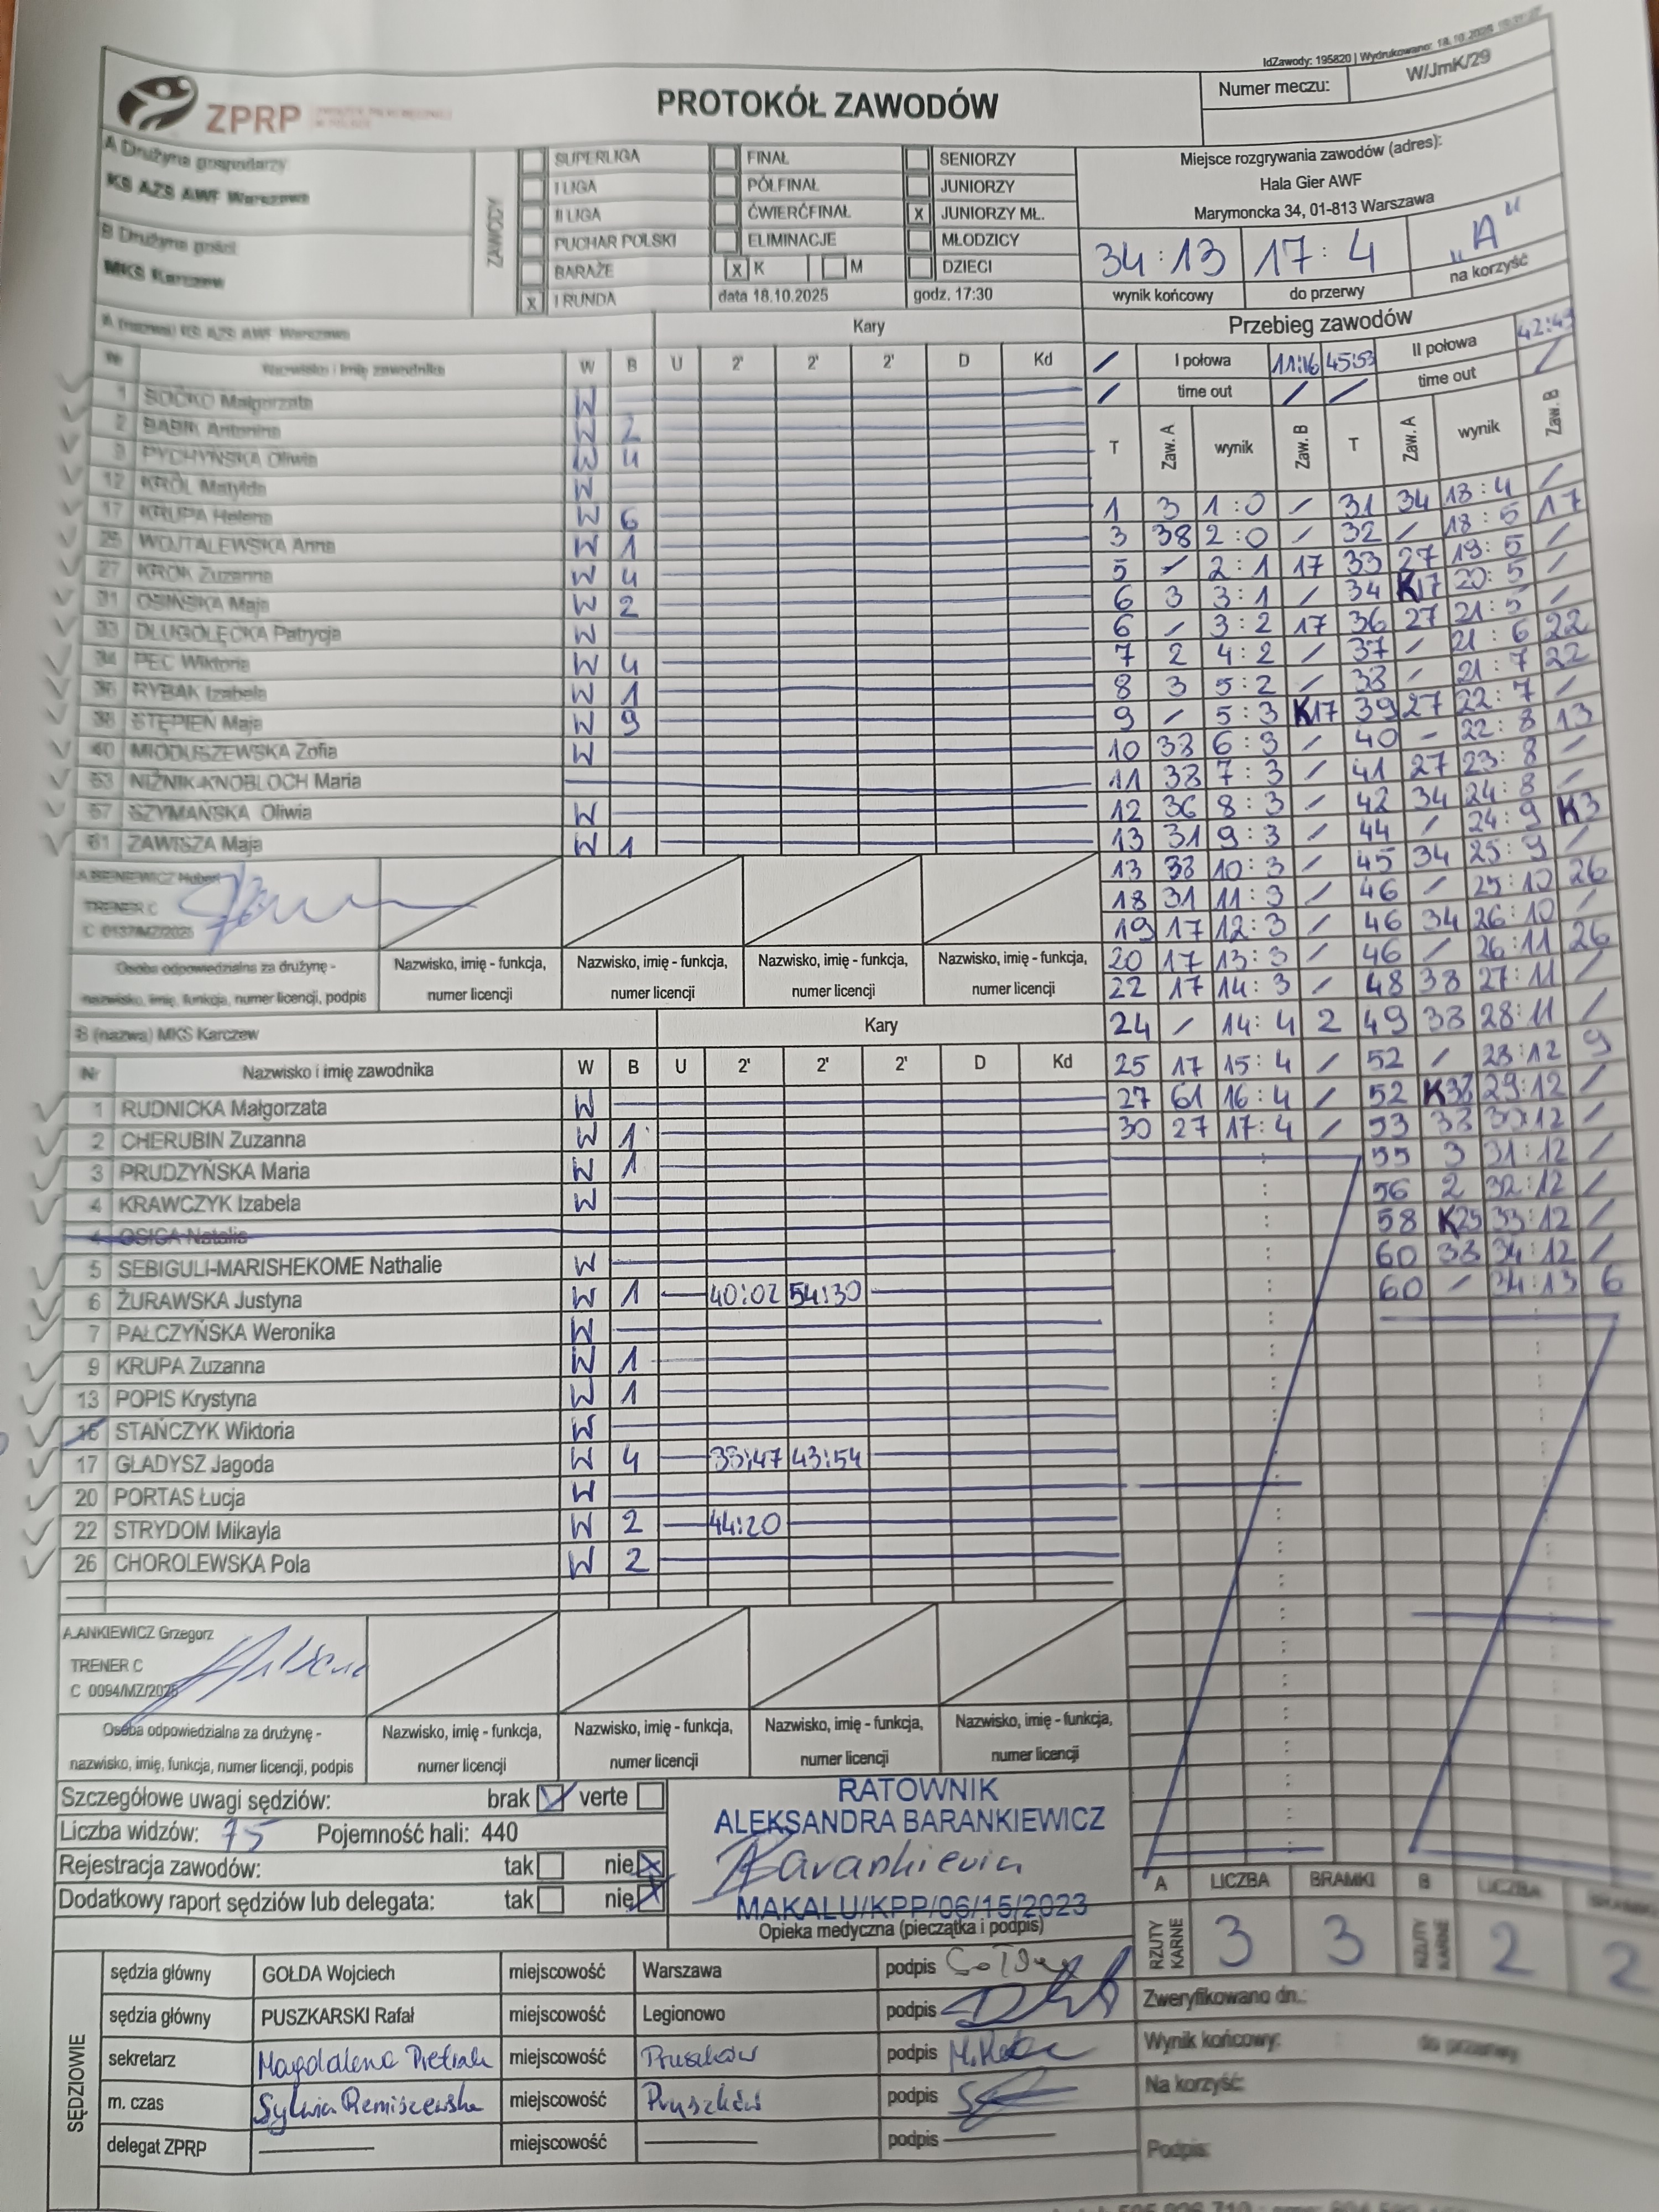 IdZawody: 195820 | Wydrukowano: 18.10.2025
ZPRP
PROTOKÓŁ ZAWODÓW
Numer meczu: W/JmK/29
A Drużyna gospodarzy
KS AZS AWF Warszawa
B Drużyna gości
MKS Karczew
ZAWODY
SUPERLIGA FINAŁ SENIORZY
I LIGA PÓŁFINAŁ JUNIORZY
II LIGA ĆWIERĆFINAŁ X JUNIORZY MŁ.
PUCHAR POLSKI ELIMINACJE MŁODZICY
BARAŻE X K M DZIECI
X I RUNDA data 18.10.2025 godz. 17:30
Miejsce rozgrywania zawodów (adres):
Hala Gier AWF
Marymoncka 34, 01-813 Warszawa
34:13 17:4 "A"
wynik końcowy do przerwy na korzyść
A (nazwa) KS AZS AWF Warszawa Kary
Nr Nazwisko i imię zawodnika W B U 2' 2' 2' D Kd
1 SOĆKO Małgorzata W
2 BABIK Antonina W 2
3 PYCHYŃSKA Oliwia W 4
12 KRÓL Matylda W
17 KRUPA Helena W 6
25 WOJTALEWSKA Anna W 1
27 KROK Zuzanna W 4
31 OSIŃSKA Maja W 2
33 DŁUGOŁĘCKA Patrycja W
34 PEC Wiktoria W 4
36 RYBAK Izabela W 1
38 STĘPIEŃ Maja W 9
40 MIODUSZEWSKA Zofia W
53 NIŻNIK-KNOBLOCH Maria
57 SZYMAŃSKA Oliwia W
61 ZAWISZA Maja W 1
A.BIENIEWICZ Hubert
TRENER C
C 0137/MZ/2025
Osoba odpowiedzialna za drużynę - nazwisko, imię, funkcja, numer licencji, podpis
Nazwisko, imię - funkcja, numer licencji
Nazwisko, imię - funkcja, numer licencji
Nazwisko, imię - funkcja, numer licencji
Nazwisko, imię - funkcja, numer licencji
B (nazwa) MKS Karczew Kary
Nr Nazwisko i imię zawodnika W B U 2' 2' 2' D Kd
1 RUDNICKA Małgorzata W
2 CHERUBIN Zuzanna W 1
3 PRUDZYŃSKA Maria W 1
4 KRAWCZYK Izabela W
4 OSICA Natalia
5 SEBIGULI-MARISHEKOME Nathalie W
6 ŻURAWSKA Justyna W 1 40:02 54:30
7 PAŁCZYŃSKA Weronika W
9 KRUPA Zuzanna W 1
13 POPIS Krystyna W 1
16 STAŃCZYK Wiktoria W
17 GŁADYSZ Jagoda W 4 33:47 43:54
20 PORTAS Łucja W
22 STRYDOM Mikayla W 2 44:20
26 CHOROLEWSKA Pola W 2
A.ANKIEWICZ Grzegorz
TRENER C
C 0094/MZ/2025
Osoba odpowiedzialna za drużynę - nazwisko, imię, funkcja, numer licencji, podpis
Nazwisko, imię - funkcja, numer licencji
Nazwisko, imię - funkcja, numer licencji
Nazwisko, imię - funkcja, numer licencji
Nazwisko, imię - funkcja, numer licencji
Przebieg zawodów
/ I połowa 11:16 45:53 II połowa 42:43
/ time out / / time out /
T Zaw. A wynik Zaw. B T Zaw. A wynik Zaw. B
1 3 1:0 / 31 34 18:4 /
3 38 2:0 / 32 / 18:5 17
5 / 2:1 17 33 27 19:5 /
6 3 3:1 / 34 K17 20:5 /
6 / 3:2 17 36 27 21:5 /
7 2 4:2 / 37 / 21:6 22
8 3 5:2 / 38 / 21:7 22
9 / 5:3 K17 39 27 22:7 /
10 38 6:3 / 40 - 22:8 13
11 38 7:3 / 41 27 23:8 /
12 36 8:3 / 42 34 24:8 /
13 31 9:3 / 44 / 24:9 K3
13 38 10:3 / 45 34 25:9 /
18 31 11:3 / 46 / 25:10 26
19 17 12:3 / 46 34 26:10 /
20 17 13:3 / 46 / 26:11 26
22 17 14:3 / 48 38 27:11 /
24 / 14:4 2 49 38 28:11 /
25 17 15:4 / 52 / 28:12 9
27 61 16:4 / 52 K38 29:12 /
30 27 17:4 / 53 38 30:12 /
55 3 31:12 /
56 2 32:12 /
58 K25 33:12 /
60 38 34:12 /
60 / 34:13 6
Szczegółowe uwagi sędziów: brak verte
Liczba widzów: 75 Pojemność hali: 440
Rejestracja zawodów: tak nie
Dodatkowy raport sędziów lub delegata: tak nie
RATOWNIK
ALEKSANDRA BARANKIEWICZ
Barankiewicz
MAKALU/KPP/06/15/2023
Opieka medyczna (pieczątka i podpis)
A LICZBA BRAMKI B LICZBA BRAMKI
RZUTY KARNE 3 3 RZUTY KARNE 2 2
SĘDZIOWIE
sędzia główny GOŁDA Wojciech miejscowość Warszawa podpis
sędzia główny PUSZKARSKI Rafał miejscowość Legionowo podpis
sekretarz Magdalena Pietrak miejscowość Pruszków podpis
m. czas Sylwia Remiszewska miejscowość Pruszków podpis
delegat ZPRP miejscowość podpis
Zweryfikowano dn.:
Wynik końcowy: do przerwy
Na korzyść:
Podpis: